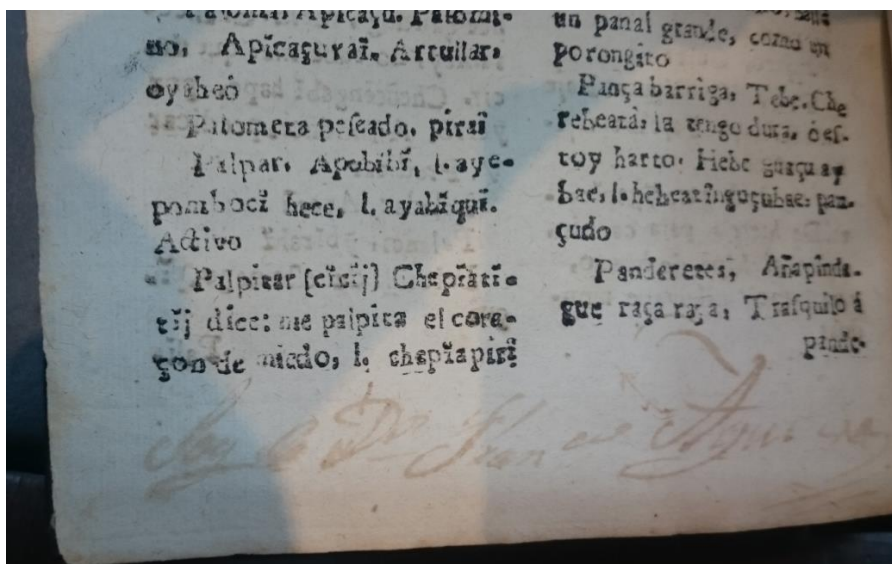 Palomi-
no, Apĭcaçuraĭ, Arrullar,
oyaheó
Palometa pescado, pirai
Palpar, Apobĭbĭ, l. aye-
pombocĭ hece, l. ayabĭquĭ.
Activo
Palpitar [cĭcĭj] Chepĭatĭ-
tĭj dice: me palpita el cora-
çon de miedo, l. chepĭapĭrĭ
un panal grande, como un
porongito
Pança barriga, Tebe. Che
rebeatâ, la tengo dura, ó es-
toy harto. Hebe guaçu ay
bae, l. pan-
çudo
Panderetes, Añapĭnda-
gue raça raça, Trasquilo á
pande-
Soy de Dn Fran co